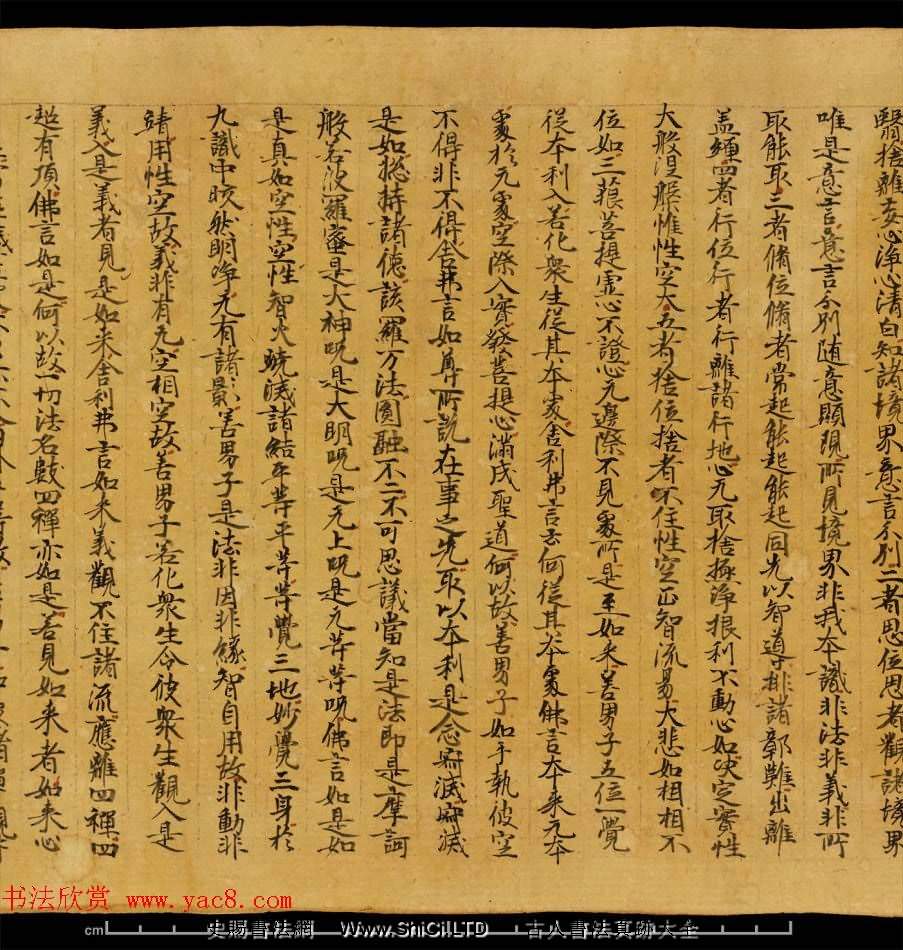 翳捨離妄心淨心清白知諸境界意言分別二者思位思者觀諸境界
唯是意言意言分別随意顯現所見境界非我本識非法非義非所
取能取三者脩位脩者常起能起能起同先以智道排諸鄣難出離
盖纏四者行位行者行離諸行地心无取捨極淨根利不動心如决定實性
大般涅槃惟性空大五者捨位捨者不住性空正智流易大悲如相相不
位如三藐菩提虚心不證心无邊際不見處所是至如来善男子五位一覺
從本利入若化衆生從其本處舍利弗言云何從其本處佛言本来无本
處於无處空際入實發菩提心滿成聖道何以故善男子如手執彼空
不得非不得舍弗言如尊所說在事之先取以本利是念寂滅寂滅
是如捴持諸徳該羅万法圓融不二不可思議當知是法即是摩訶
般若波羅蜜是大神呪是大明呪是无上呪是无等等呪佛言如是如
是真如空性空性智火燒滅諸結平等平等等覺三地妙覺三身於
九識中皎然明淨无有諸影善男子是法非因非緣智自用故非動非
靖用性空故義非有无空相空故善男子若化衆生令彼衆生觀入是
義入是義者見是如来舍利弗言如来義觀不住諸流應離四禪四
超有頂佛言如是何以故一切法名數四禪亦如是若見如来者如来心
书法欣赏 www.yac8.com
cm
史賜書法網 Www.ShiCiI.LTD 古人書法真跡大全